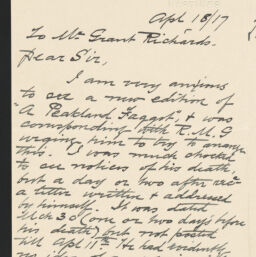 Apl 18/17
To Mr Grant Richards.
Dear Sir,
I am very anxious
to see a new edition of
"A Peakland Faggot", & was
corresponding with R. M. G
urging him to try to arrange
this. I was much shocked
to see notices of his death,
but a day or two after rec'd
a letter written & addressed
by himself. It was dated
Mch 30 (one or two days before
his death) but not posted
till Apl 11th. He had evidently
no idea